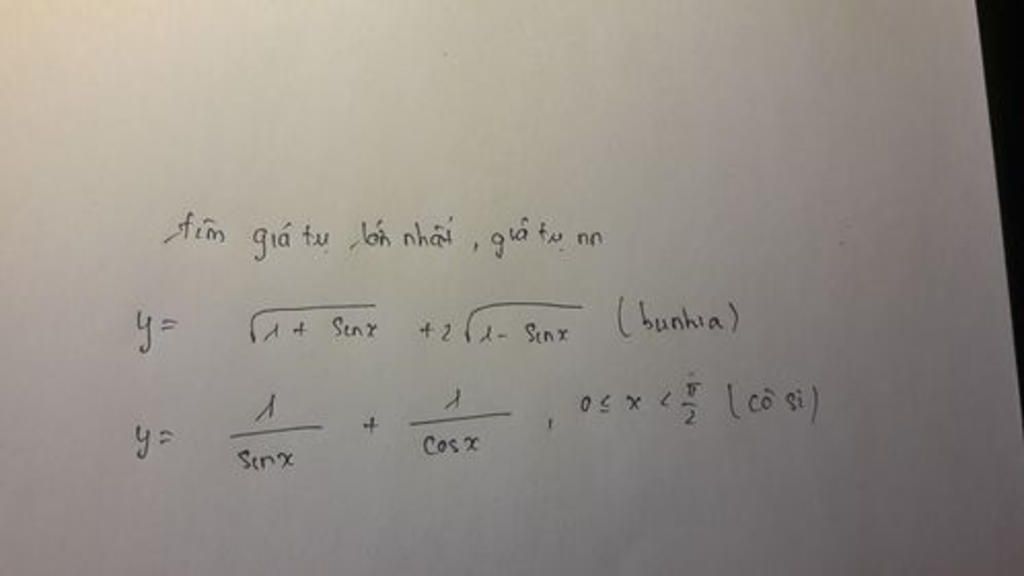 tìm giá trị lớn nhất, giá trị nn
y = √(1 + sinx) + 2√(1 - sinx) (bunhia)
y = 1/sinx + 1/cosx , 0 ≤ x < π/2 (cô si)